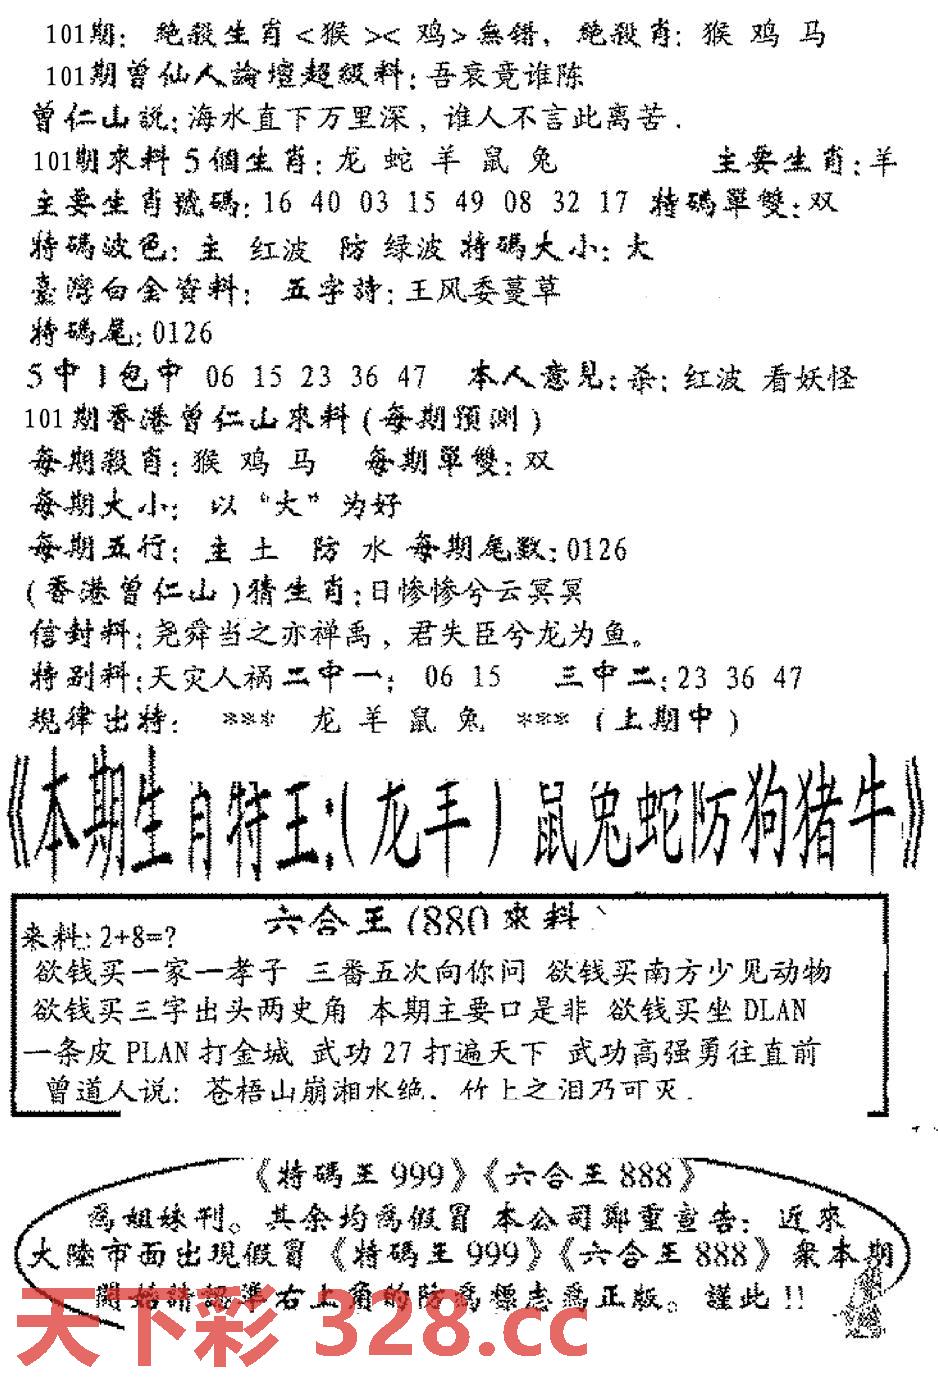 101期: 絶殺生肖<猴><鸡>無错, 絶殺肖: 猴 鸡 马
101期曾仙人論壇超級料:吾衰竟谁陈
曾仁山説:海水直下万里深, 谁人不言此离苦.
101期來料 5個生肖: 龙 蛇 羊 鼠 兔 主要生肖:羊
主要生肖號碼:16 40 03 15 49 08 32 17 特碼單雙:双
特碼波色: 主 红波 防 绿波 特碼大小: 大
臺灣白金資料: 五字詩:王风委蔓草
特碼尾:0126
5中1包中 06 15 23 36 47 本人意见:杀: 红波 看妖怪
101期香港曾仁山來料(每期預測)
每期殺肖:猴 鸡 马 每期單雙:双
每期大小: 以“大”为好
每期五行: 主 土 防 水 每期尾数:0126
(香港曾仁山)猜生肖:日惨惨兮云冥冥
信封料:尧舜当之亦禅禹, 君失臣兮龙为鱼。
特别料:天灾人祸二中一: 06 15 三中二:23 36 47
規律出特: *** 龙 羊 鼠 兔 *** (上期中)
《本期生肖特王:(龙羊)鼠兔蛇防狗猪牛》
六合王(880來料)
来料:2+8=?
欲钱买一家一孝子 三番五次向你问 欲钱买南方少见动物
欲钱买三字出头两史角 本期主要口是非 欲钱买坐DLAN
一条皮PLAN打金城 武功27打遍天下 武功高强勇往直前
曾道人说: 苍梧山崩湘水绝. 竹上之泪乃可灭.
《特碼王999》《六合王888》
爲姐妹刊。其余均爲假冒 本公司鄭重宣告: 近來
大陸市面出現假冒《特碼王999》《六合王888》衆本期
開始請認準右上角的防爲標志爲正版。謹此!!
天下彩 328.cc